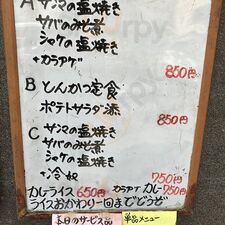 A サンマの塩焼き
サバのみそ煮
シャケの塩焼き
+カラアゲ
850円
B とんかつ定食
ポテトサラダ添
850円
C サンマの塩焼き
サバのみそ煮
シャケの塩焼き
+冷奴
750円
カレーライス 650円 カラアゲカレー 750円
ライスおかわり一回までどうぞ
本日のサービス品 単品メニュー